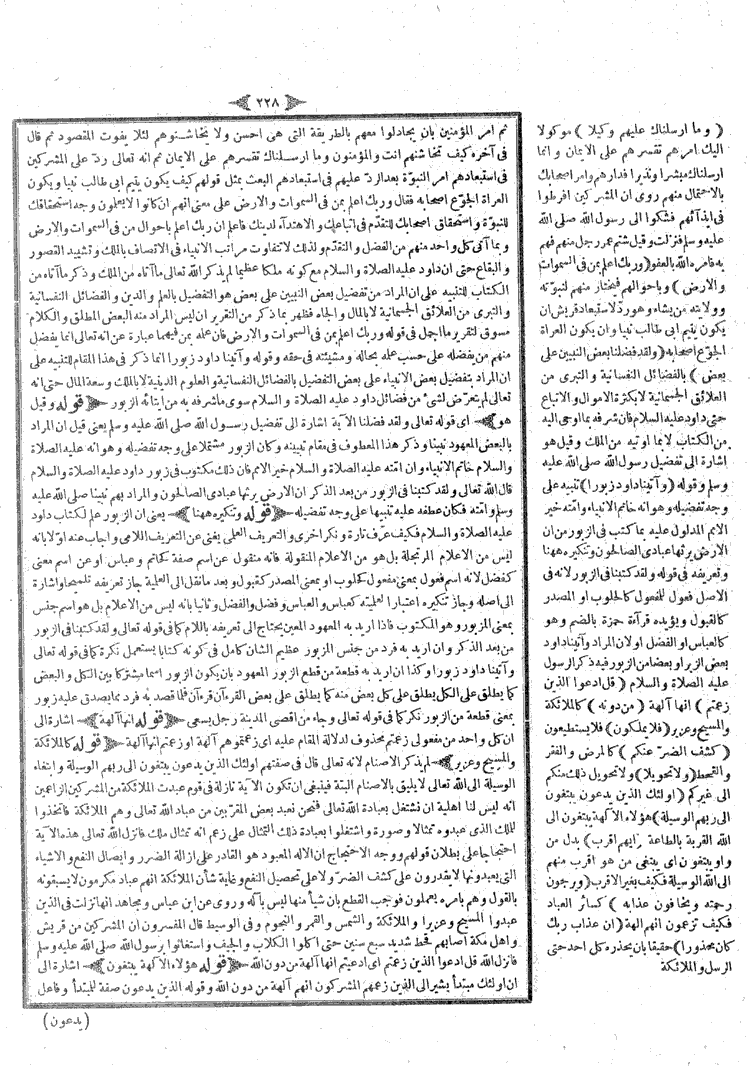 ٢٢٨
ثم امر المؤمنين بان يجادلوا معهم بالطريقة التى هى احسن ولا يخاشنوهم لئلا يفوت المقصود ثم قال
فى آخره كيف تخاشنهم انت والمؤمنون وما ارسلناك تقسرهم على الايمان ثم انه تعالى رد على المشركين
فى استبعادهم امر النبوة بعد الرد عليهم فى استبعادهم البعث بمثل قولهم كيف يكون يتيم ابى طالب نبيا ويكون
العراة الجوع اصحابه فقال وربك اعلم بمن فى السموات والارض على معنى انهم ان كانوا لا يعلمون وجه استحقاقك
للنبوة واستحقاق اصحابك للتقدم فى اتباعك والاهتداء لدينك فاعلم ان ربك اعلم باحوال من فى السموات والارض
وبما آتى كل واحد منهم من الفضل والتقدم ولذلك لا تتفاوت مراتب الانبياء فى الاتصاف بالملك وتشييد القصور
والبقاع حتى ان داود عليه الصلاة والسلام مع كونه ملكا عظيما لم يذكر الله تعالى ما آتاه من الملك وذكر ما آتاه من
الكتاب للتنبيه على ان المراد من تفضيل بعض النبيين على بعض هو التفضيل بالعلم والدين والفضائل النفسانية
والتبرى من العلائق الجسمانية لا بالمال والجاه فظهر بما ذكر من التقرير ان ليس المراد منه البعض المطلق والكلام
مسوق لتقرير ما اجمل فى قوله وربك اعلم بمن فى السموات والارض فان علمه بمن فيهما عبارة عن انه تعالى انما يفضل
منهم من يفضله على حسب علمه بحاله ومشيئته فى حقه وقوله وآتينا داود زبورا انما ذكر فى هذا المقام للتنبيه على
ان المراد بتفضيل بعض الانبياء على بعض التفضيل بالفضائل النفسانية والعلوم الدينية لا بالملك وسعة المال حتى انه
تعالى لم يتعرض لشئ من فضائل داود عليه الصلاة والسلام سوى ما شرفه به من ايتائه الزبور ﴿ قوله وقيل
هو ﴾ اى قوله تعالى ولقد فضلنا الآية اشارة الى تفضيل رسول الله صلى الله عليه وسلم يعنى قيل ان المراد
بالبعض المعهود نبينا وذكر هذا المعطوف فى مقام تبيينه وكان الزبور مشتملا على وجه تفضيله وهو انه عليه الصلاة
والسلام خاتم الانبياء وان امته عليه الصلاة والسلام خير الامم فان ذلك مكتوب فى زبور داود عليه الصلاة والسلام
قال الله تعالى ولقد كتبنا فى الزبور من بعد الذكر ان الارض يرثها عبادى الصالحون والمراد بهم نبينا صلى الله عليه
وسلم وامته فكان عطفه عليه تنبيها على وجه تفضيله ﴿ قوله وتنكيره ههنا ﴾ يعنى ان الزبور علم لكتاب داود
عليه الصلاة والسلام فكيف عرف تارة ونكر اخرى والتعريف العلمى يغنى عن التعريف اللامى واجاب عنه اولا بانه
ليس من الاعلام المرتجلة بل هو من الاعلام المنقولة فانه منقول عن اسم صفة كحاتم وعباس او عن اسم معنى
كفضل لانه اسم فعول بمعنى مفعول كحلوب او بمعنى المصدر كقبول وبعد ما نقل الى العلمية جاز تعريفه تلميحا واشارة
الى اصله وجاز تنكيره اعتبارا لعلميته كعباس والعباس وفضل والفضل وثانيا بانه ليس من الاعلام بل هو اسم جنس
بمعنى المزبور وهو المكتوب فاذا اريد به المعهود المعين يحتاج الى تعريفه باللام كما فى قوله تعالى ولقد كتبنا فى الزبور
من بعد الذكر وان اريد به فرد من جنس المزبور عظيم الشان كامل فى كونه كتابا يستعمل نكرة كما فى قوله تعالى
وآتينا داود زبورا وكذا ان اريد به قطعة من قطع الزبور المعهود بان يكون الزبور اسما مشتركا بين الكل والبعض
كما يطلق على الكل يطلق على كل بعض منه كما يطلق على بعض القرءآن قرءآن فلما قصد به فرد مما يصدق عليه زبور
بمعنى قطعة من الزبور نكر كما فى قوله تعالى وجاء من اقصى المدينة رجل يسعى ﴿ قوله انها آلهة ﴾ اشارة الى
ان كل واحد من مفعولى زعمتم محذوف لدلالة المقام عليه اى زعمتموهم آلهة او زعمتم انها آلهة ﴿ قوله كالملائكة
والمسيح وعزير ﴾ لم يذكر الاصنام لانه تعالى قال فى صفتهم اولئك الذين يدعون يبتغون الى ربهم الوسيلة وابتغاء
الوسيلة الى الله تعالى لا يليق بالاصنام البتة فينبغى ان تكون الآية نازلة فى قوم عبدت الملائكة من المشركين الزاعمين
انه ليس لنا اهلية ان نشتغل بعبادة الله تعالى فنحن نعبد بعض المقربين من عباد الله تعالى وهم الملائكة فاتخذوا
لملك الذى عبدوه تمثالا وصورة واشتغلوا بعبادة ذلك التمثال على زعم انه تمثال ملك فانزل الله تعالى هذه الآية
احتجاجا على بطلان قولهم ووجه الاحتجاج ان الاله المعبود هو القادر على ازالة الضرر وايصال النفع والاشياء
التى يعبدونها لا يقدرون على كشف الضر ولا على تحصيل النفع وغاية شأن الملائكة انهم عباد مكرمون لا يسبقونه
بالقول وهم بامره يعملون فوجب القطع بان شيأ منها ليس باله وروى عن ابن عباس ومجاهد انها نزلت فى الذين
عبدوا المسيح وعزيرا والملائكة والشمس والقمر والنجوم وفى الوسيط قال المفسرون ان المشركين من قريش
واهل مكة اصابهم قحط شديد سبع سنين حتى اكلوا الكلاب والجيف واستغاثوا برسول الله صلى الله عليه وسلم
فانزل الله قل ادعوا الذين زعمتم اى ادعيتم انها آلهة من دون الله ﴿ قوله هؤلاء الآلهة يبتغون ﴾ اشارة الى
ان اولئك مبتدأ يشير الى الذين زعمهم المشركون انهم آلهة من دون الله وقوله الذين يدعون صفة للمبتدأ وفاعل
(يدعون)
( وما ارسلناك عليهم وكيلا ) موكولا
اليك امرهم تقسرهم على الايمان وانما
ارسلناك مبشرا ونذيرا فدارهم وامر اصحابك
بالاحتمال منهم روى ان المشركين افرطوا
فى ايذائهم فشكوا الى رسول الله صلى الله
عليه وسلم فنزلت وقيل شتم عمر رجل منهم فهم
به فامره الله بالعفو ( وربك اعلم بمن فى السموات
والارض ) وباحوالهم فيختار منهم لنبوته
وولايته من يشاء وهو رد لاستبعاد قريش ان
يكون يتيم ابى طالب نبيا وان يكون العراة
الجوع اصحابه ( ولقد فضلنا بعض النبيين على
بعض ) بالفضائل النفسانية والتبرى من
العلائق الجسمانية لا بكثرة الاموال والاتباع
حتى داود عليه السلام فان شرفه بما اوحى اليه
من الكتاب لا بما اوتيه من الملك وقيل هو
اشارة الى تفضيل رسول الله صلى الله عليه
وسلم وقوله ( وآتينا داود زبورا ) تنبيه على
وجه تفضيله وهو انه خاتم الانبياء وامته خير
الامم المدلول عليه بما كتب فى الزبور من ان
الارض يرثها عبادى الصالحون وتنكيره ههنا
وتعريفه فى قوله ولقد كتبنا فى الزبور لانه فى
الاصل فعول للمفعول كالحلوب او المصدر
كالقبول ويؤيده قراءة حمزة بالضم وهو
كالعباس او الفضل او لان المراد وآتينا داود
بعض الزبر او بعضا من الزبور فيه ذكر الرسول
عليه الصلاة والسلام ( قل ادعوا الذين
زعمتم ) انها آلهة ( من دونه ) كالملائكة
والمسيح وعزير ( فلا يملكون ) فلا يستطيعون
( كشف الضر عنكم ) كالمرض والفقر
والقحط ( ولا تحويلا ) ولا تحويل ذلك منكم
الى غيركم ( اولئك الذين يدعون يبتغون
الى ربهم الوسيلة ) هؤلاء الآلهة يبتغون الى
الله القربة بالطاعة ( ايهم اقرب ) بدل من
واو يبتغون اى يبتغى من هو اقرب منهم
الى الله الوسيلة فكيف بغير الاقرب ( ويرجون
رحمته ويخافون عذابه ) كسائر العباد
فكيف تزعمون انهم آلهة ( ان عذاب ربك
كان محذورا ) حقيقا بان يحذره كل احد حتى
الرسل والملائكة